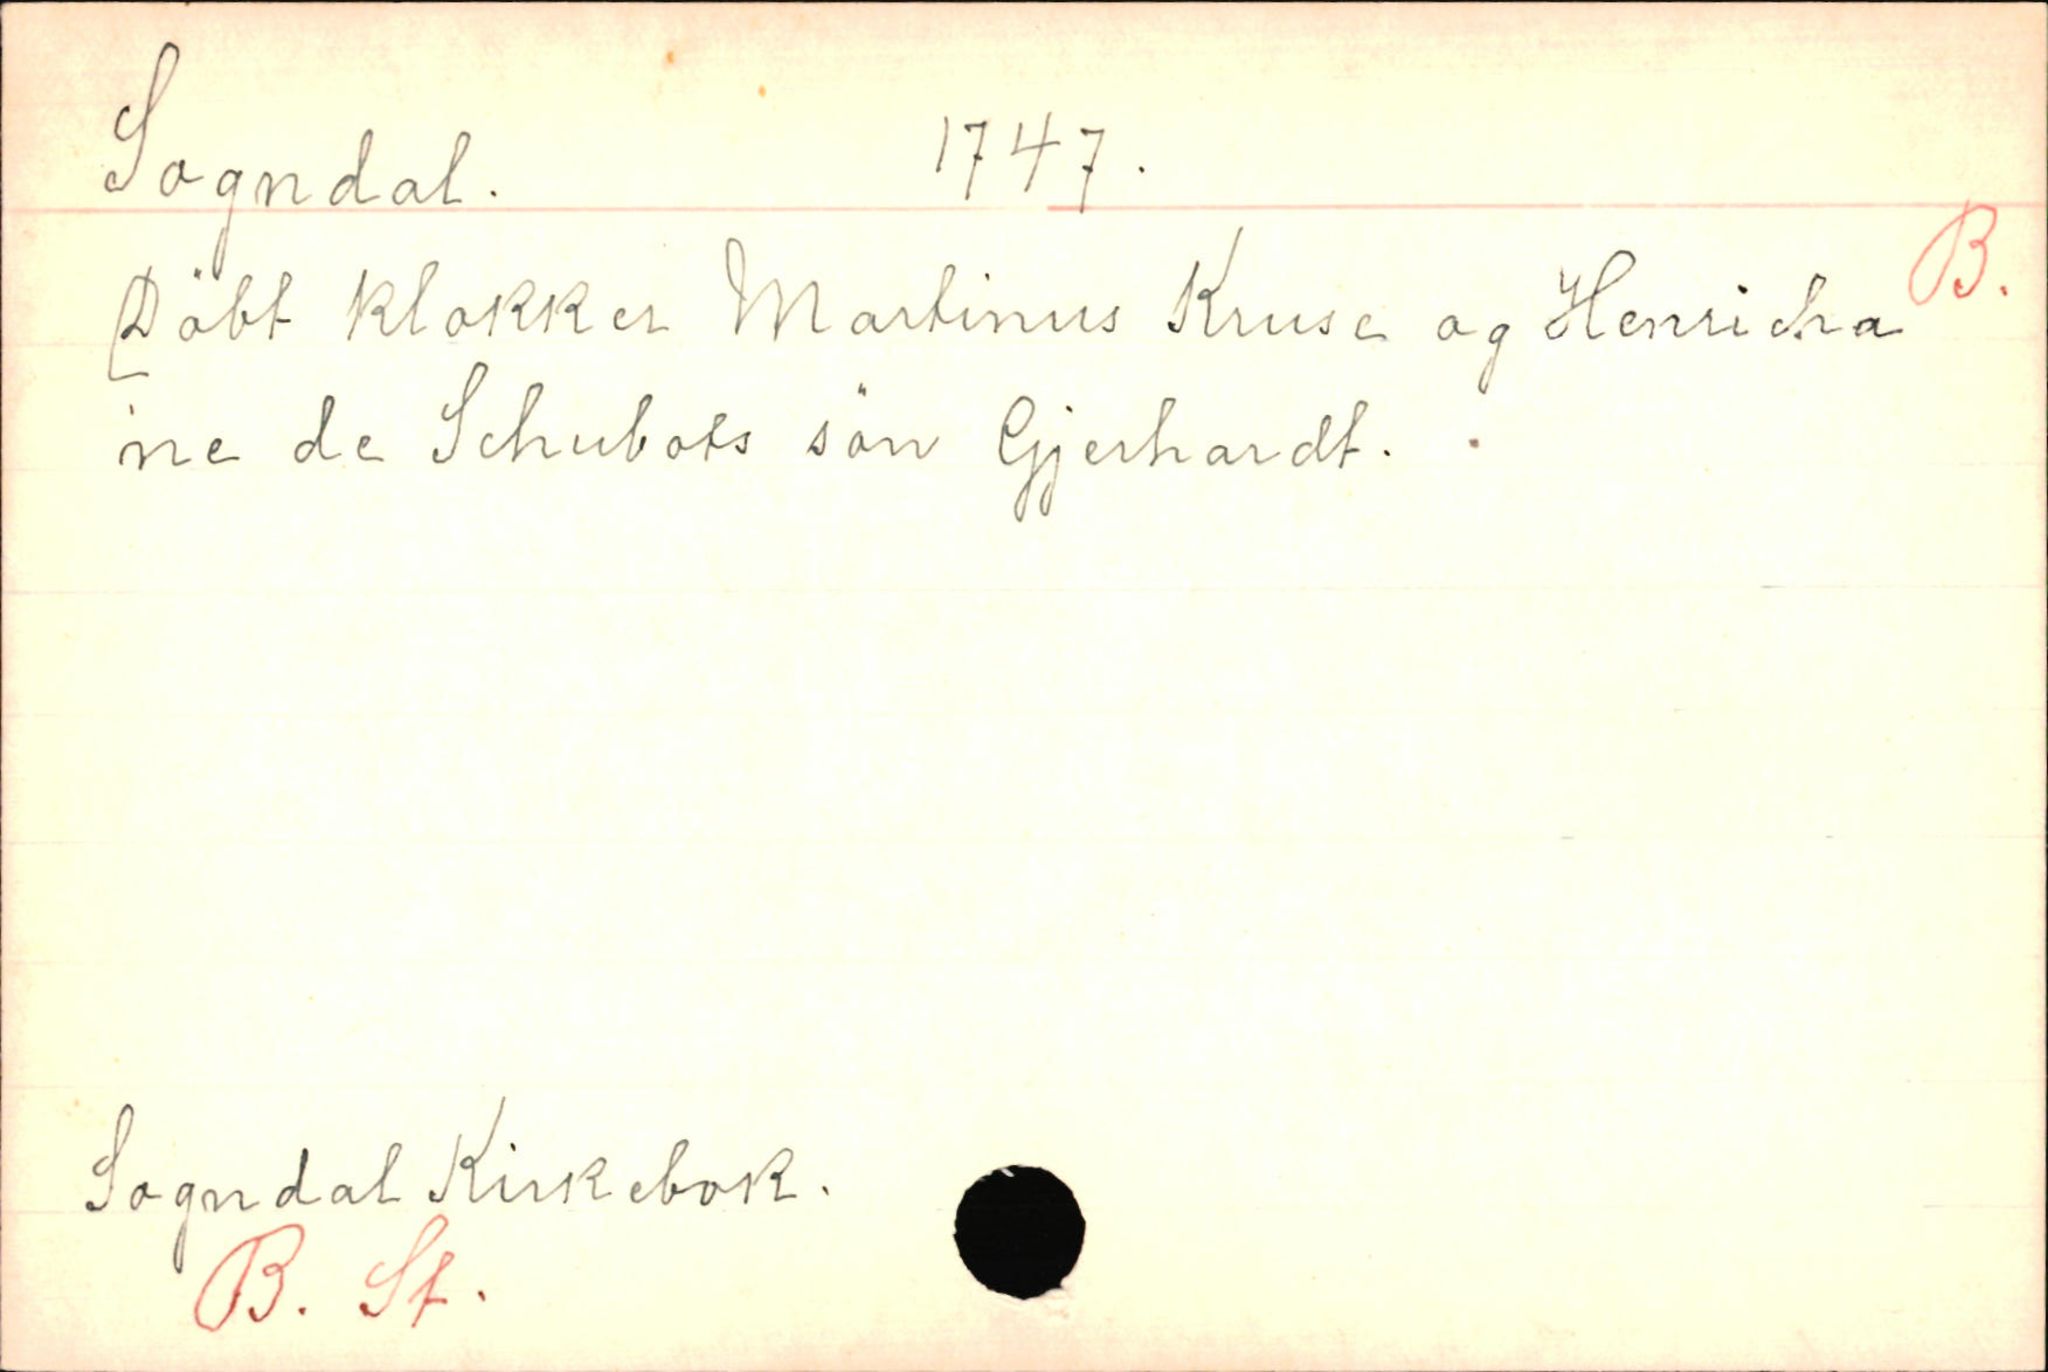 Sogndal. 1747.
B.
Döbt klokker Martinus Kruse og Henricha
ine de Schubots sön Gjerhardt.
Sogndal Kirkebok.
B. St.